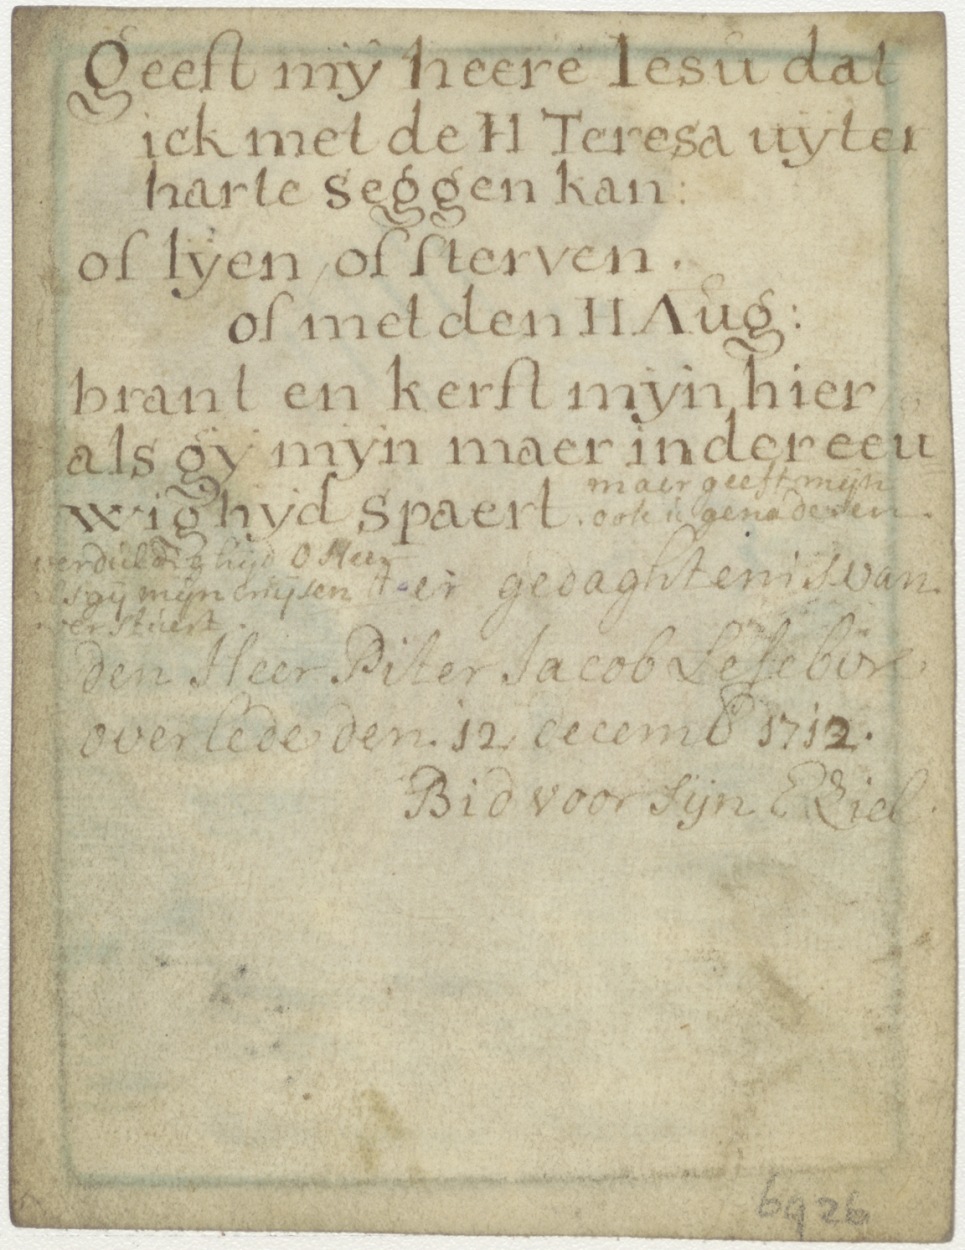 geeft mÿ heere Iesu dat
ick met de H Teresa uyter
harte seggen kan:
of lÿen, of sterven.
of met den H Aug:
brant en kerft mÿn hier
als gÿ mÿn maer in der eeu
wighÿd spaert. maer geeft mijn
ook u genade en
verduldighijd O Heer
als gij mijn cruÿsen
overstuert.
ter gedaghtenis van
den Heer Piter Jacob Lefebure
overlede den 12 decemb 1712.
Bid voor sijn Ziel.
6926